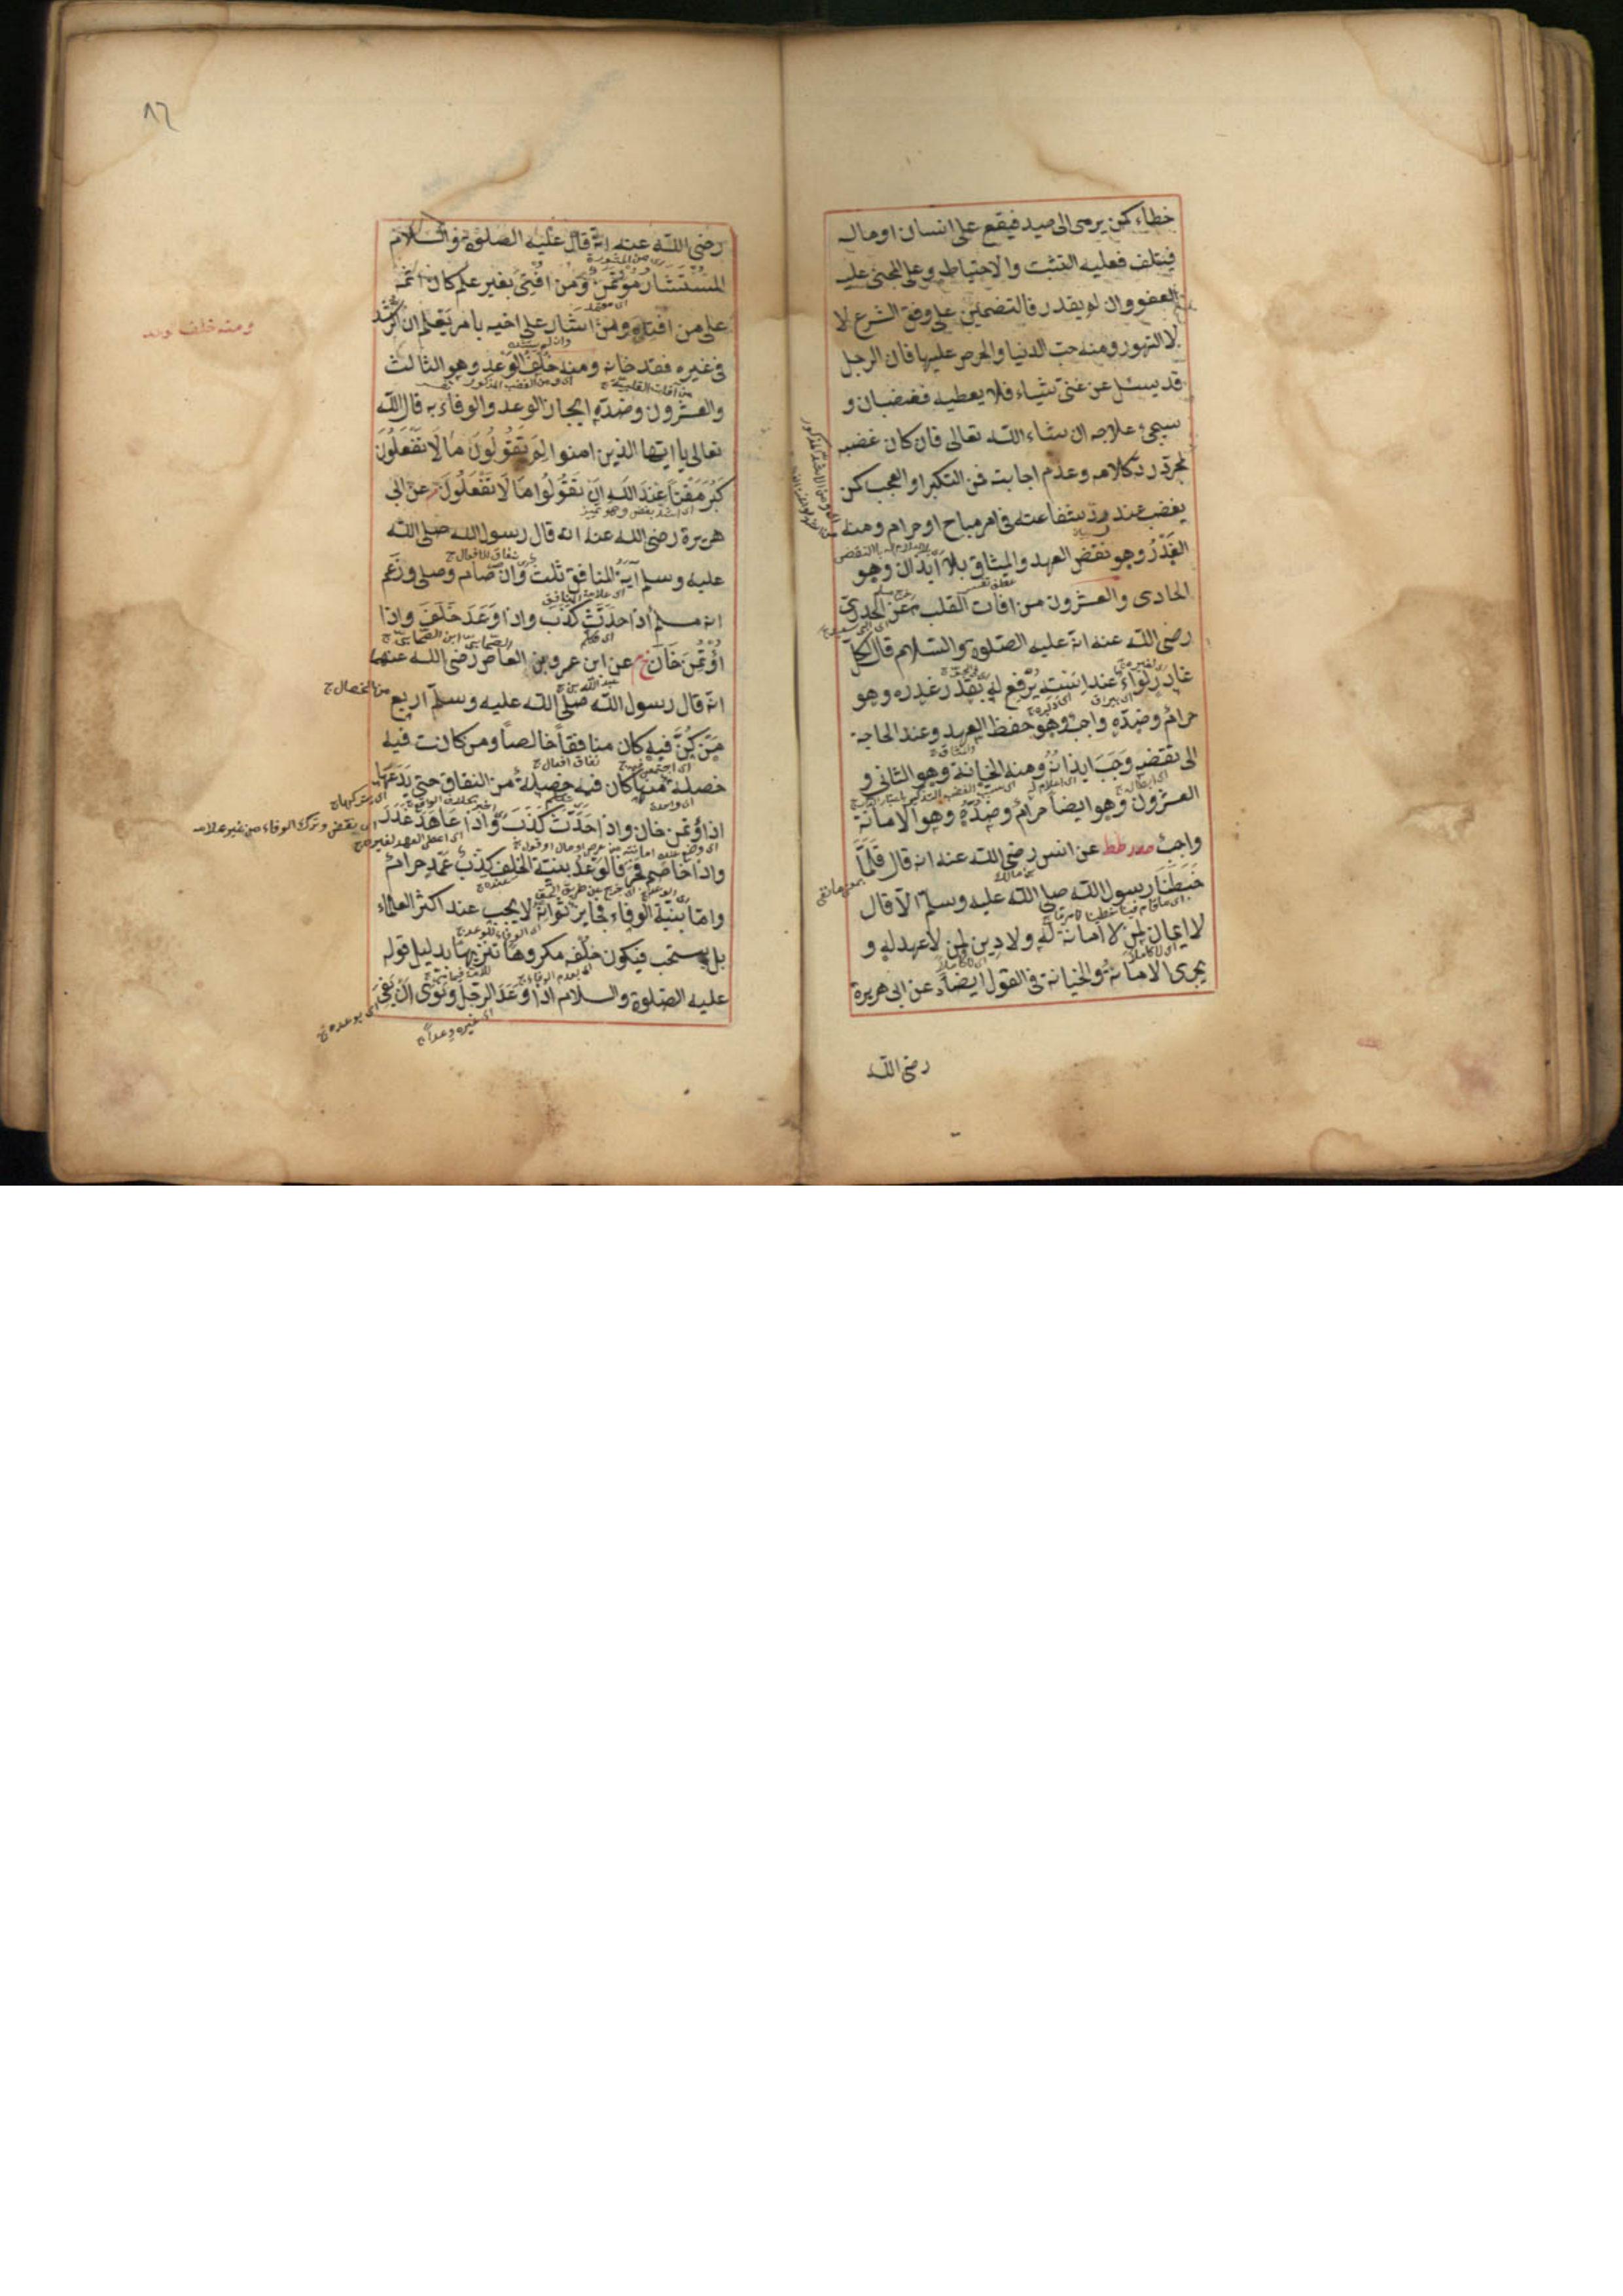 خطاء كمن يرمى الى صيد فيقع على انسان او مال
فيتلف فعليه التثبت والاحتياط وعلى المجنى عليه
العفو وان لم يقدر فالتضمين على وفق الشرع لا
لا التهور ومنه حب الدنيا والحرص عليها فان الرجل
قد يسئل عن غنى شياء فلا يعطيه فغضبان و
سيجئ علاجه ان شاء الله تعالى فان كان غضبه
لمجرد رد كلامه وعدم اجابته فمن التكبر او العجب كمن
يغضب عند رد شفاعته فى امر مباح او حرام ومنه
الغدر وهو نقض العهد والميثاق بلا ايذان وهو
الحادى والعشرون من افات القلب م عن الخدرى
رضى الله عنه انه عليه الصلوة والسلام قال لكل
غادر لواء عند استه يرفع له بقدر غدره وهو
حرام وضده واجب وهو حفظ العهد وعند الحاجة
الى نقضه وجب ايذانه ومنه الخيانة وهو الثانى و
العشرون وهو ايضا حرام وضده وهو الامانة
واجب حدد طط عن انس رضى الله عنه انه قال قلما
خطبنا رسول الله صلى الله عليه وسلم الا قال
لا ايمان لمن لا امانة له ولا دين لمن لا عهد له و
يجرى الامانة والخيانة فى القول ايضا د عن ابى هريرة
رضى الله
٨٦
رضى الله عنه انه قال عليه الصلوة والسلام
المستشار مؤتمن ومن افتى بغير علم كان اثمه
على من افتاه ومن اشار على اخيه بامر يعلم ان الرشد
فى غيره فقد خانه ومنه خلف الوعد وهو الثالث
والعشرون وضده انجاز الوعد والوفاء به قال الله
تعالى يا ايها الذين امنوا لم تقولون ما لا تفعلون
كبر مقتا عند الله ان تقولوا ما لا تفعلون م عن ابى
هريرة رضى الله عنه انه قال رسول الله صلى الله
عليه وسلم آية المنافق ثلث وان صام وصلى وزعم
انه مسلم اذا حدث كذب واذا وعد خلف واذا
اؤتمن خان خ م عن ابن عمرو بن العاص رضى الله عنهما
انه قال رسول الله صلى الله عليه وسلم اربع
من كن فيه كان منافقا خالصا ومن كانت فيه
خصلة منها كان فيه خصلة من النفاق حتى يدعها
اذا اؤتمن خان واذا حدث كذب واذا عاهد غدر
واذا خاصم فجر فالوعد بنية الخلف كذب عمد حرام
واما بنية الوفاء فجايز ثم انه لا يجب عند اكثر العلماء
بل يستحب فيكون خلفه مكروها تنزيها بدليل قوله
عليه الصلوة والسلام اذا وعد الرجل ونوى ان يفى
ومنه خلف وعد
من الخصال ج
اى يتركها ج
اى بوعده ج
اى غيره وعدا ج